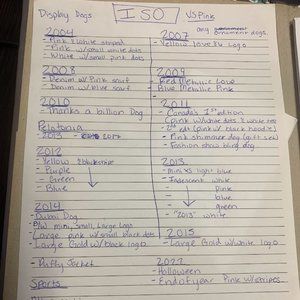 Display Dogs
ISO
VS Pink
any ornament dogs.
2004
- Pink & white striped
- Pink w/small white dots
- White w/small pink dots
2007
- Yellow love &w Logo
2008
- Denim w/Pink scarf
- Denim w/blue scarf
2009
- Red Metallic Love
- Blue Metallic Pink
2010
- Thanks a billion Dog
Pelotonia
- 2013
2017
2011
- Canada's 1st edition
(pink w/white dots & white tee
- 2nd edt (pink w/ black hoodie)
- Pink shimmer dog (gift set)
- Fashion show bling dog
2012
- Yellow
- Purple
- Green
- Blue
2013
- mini xs light blue
- Iridescent white
pink
blue
green
- "2013" white
2014
- Dubai Dog
- Phi mini, Small, Large Logo
- Large pink w/small black dots
- Large Gold w/black logo
2015
- Large Gold w/white logo
- Puffy Jacket
Sports
2022
- Halloween
- End of year Pink w/stripes